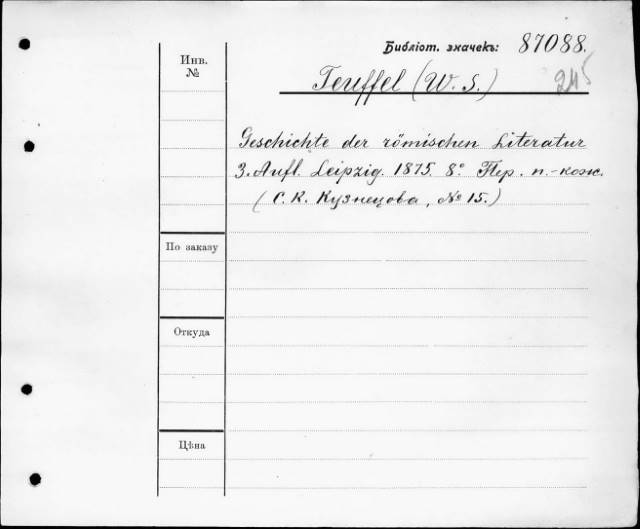 Библіот. значекъ: 87088.
Инв. №
Teuffel (W. S.)
245
Geschichte der römischen Literatur
3. Aufl. Leipzig. 1875. 8º. Пер. п.-кож.
(С. К. Кузнецова, № 15.)
По заказу
Откуда
Цѣна